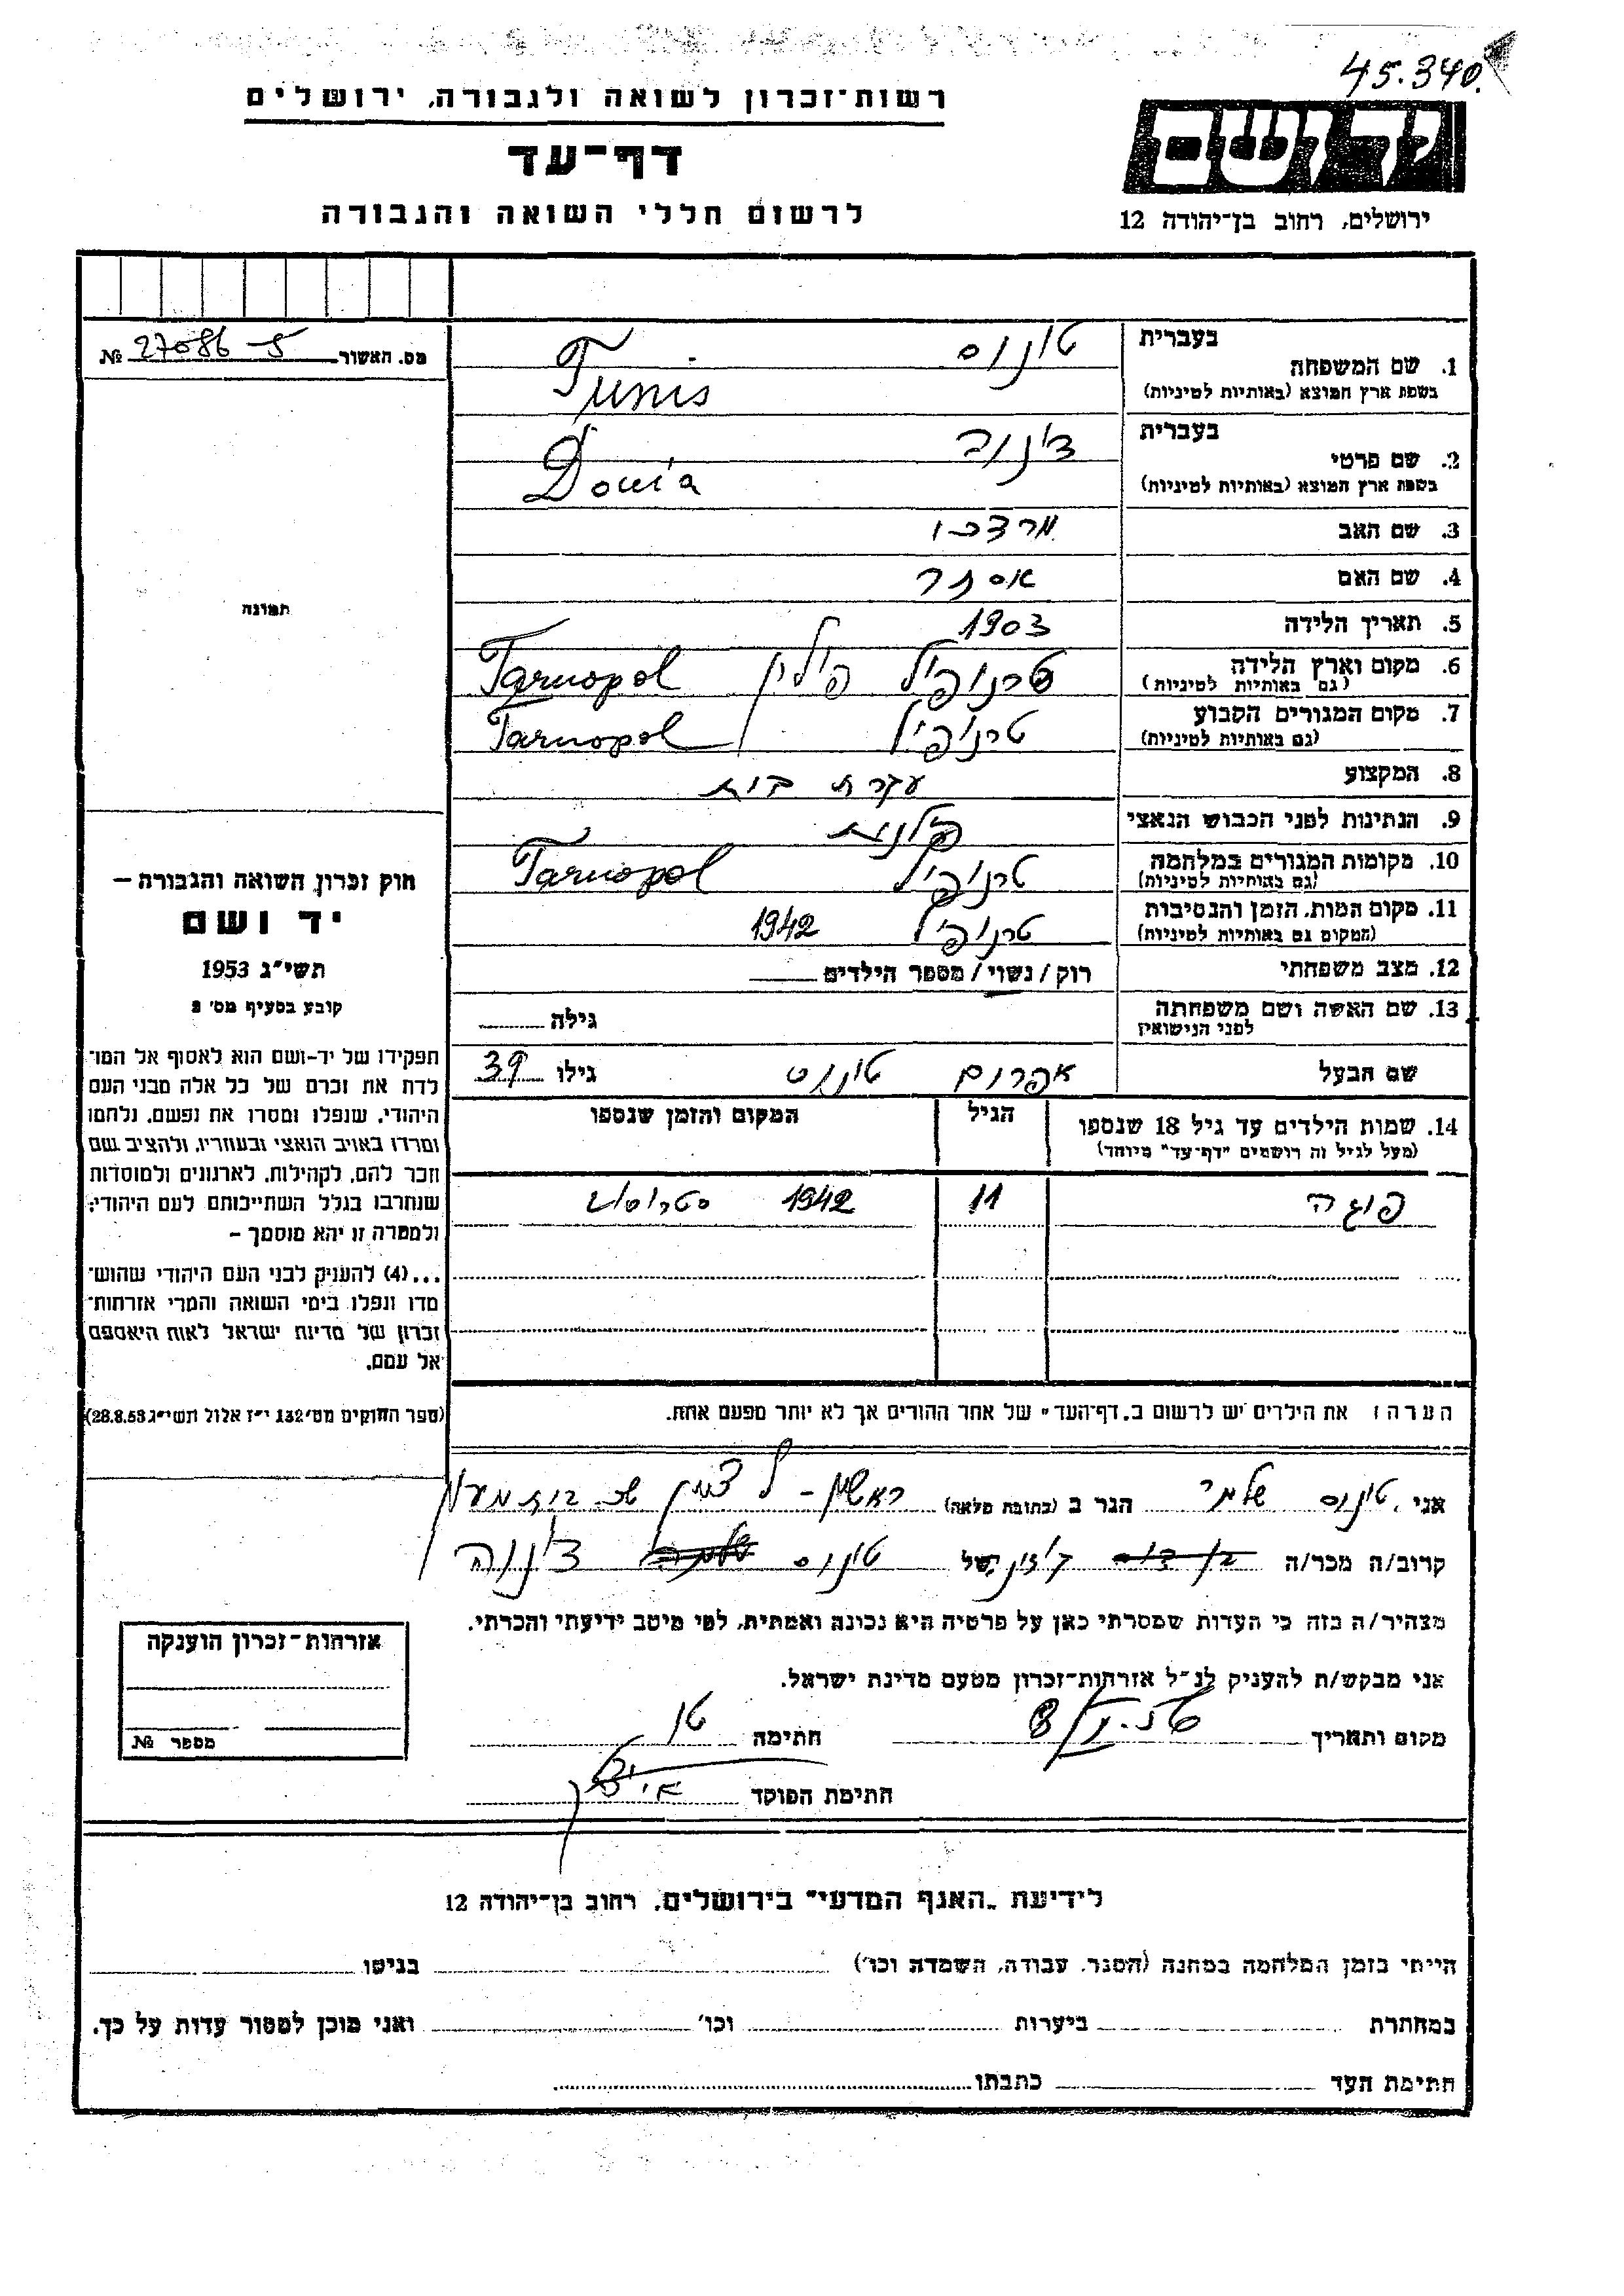 45.340
רשות־זכרון לשואה ולגבורה, ירושלים
יד ושם
דף־עד
לרשום חללי השואה והגבורה
ירושלים, רחוב בן־יהודה 12
מס. האשור 27086 №
בעברית
1. שם המשפחה טונוס
בשפת ארץ המוצא (באותיות לטיניות) Tunis
בעברית
2. שם פרטי
בשפת ארץ המוצא (באותיות לטיניות)
3. שם האב מרדכי
4. שם האם אסתר
תמונה
5. תאריך הלידה 1903
6. מקום וארץ הלידה טרנופיל פולין Tarnopol
(גם באותיות לטיניות)
7. מקום המגורים הקבוע טרנופיל Tarnopol
(גם באותיות לטיניות)
8. המקצוע עקרת בית
9. הנתינות לפני הכבוש הנאצי פולנית
10. מקומות המגורים במלחמה טרנופיל Tarnopol
(גם באותיות לטיניות)
11. מקום המות, הזמן והנסיבות טרנופיל 1942
(המקום גם באותיות לטיניות)
12. מצב משפחתי רוק/נשוי/מספר הילדים
13. שם האשה ושם משפחתה גילה
לפני הנישואין
שם הבעל אפרים טונוס גילו 39
14. שמות הילדים עד גיל 18 שנספו הגיל המקום והזמן שנספו
(מעל לגיל זה רושמים "דף־עד" מיוחד)
11 1942
חוק זכרון השואה והגבורה –
יד ושם
תשי"ג 1953
קובע בסעיף מס' 2
תפקידו של יד-ושם הוא לאסוף אל המו־
לדת את זכרם של כל אלה מבני העם
היהודי, שנפלו ומסרו את נפשם, נלחמו
ומרדו באויב הנאצי ובעוזריו, ולהציב שם
וזכר להם, לקהילות, לארגונים ולמוסדות
שנחרבו בגלל השתייכותם לעם היהודי;
ולמטרה זו יהא מוסמך –
...(4) להעניק לבני העם היהודי שהוש־
מדו ונפלו בימי השואה והמרי אזרחות־
זכרון של מדינת ישראל לאות היאספם
אל עמם.
(ספר החוקים מס' 132 י"ז אלול תשי"ג 28.8.53)
הערה: את הילדים יש לרשום ב„דף־העד" של אחד ההורים אך לא יותר מפעם אחת.
אני, טונוס הגר ב (כתובת מלאה) ראשון-לציון
קרוב/ה מכר/ה של טונוס
מצהיר/ה בזה כי העדות שמסרתי כאן על פרטיה היא נכונה ואמתית, לפי מיטב ידיעתי והכרתי.
אני מבקש/ת להעניק לנ"ל אזרחות־זכרון מטעם מדינת ישראל.
מקום ותאריך חתימה
חתימת הפוקד
אזרחות־זכרון הוענקה
מספר №
לידיעת „האגף המדעי" בירושלים, רחוב בן־יהודה 12
הייתי בזמן המלחמה במחנה (הסגר, עבודה, השמדה וכו') בגיטו
במחתרת ביערות וכו' ואני מוכן למסור עדות על כך.
חתימת העד כתבתו